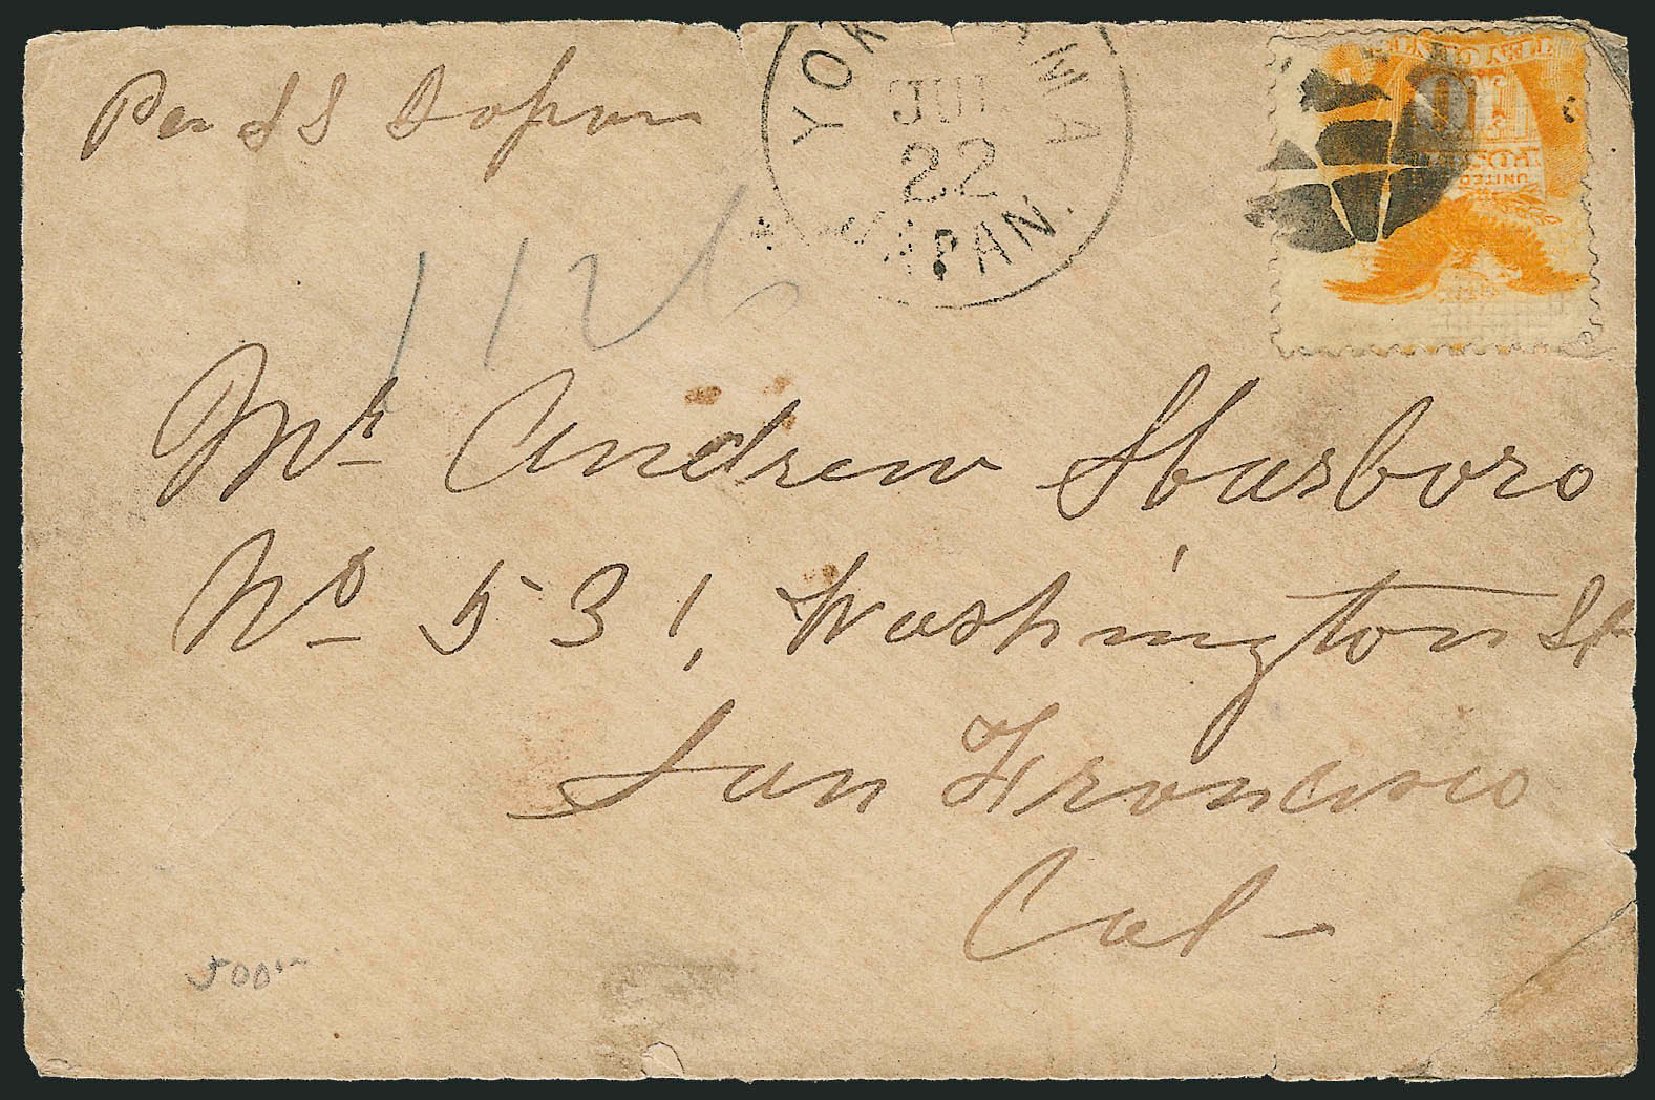 Per SS Japan
YOKOHAMA
JUL
22
JAPAN.
TEN CENTS
10
UNITED
1126
Mr Andrew Sbarboro
No 531, Washington St
San Francisco
Cal-
500